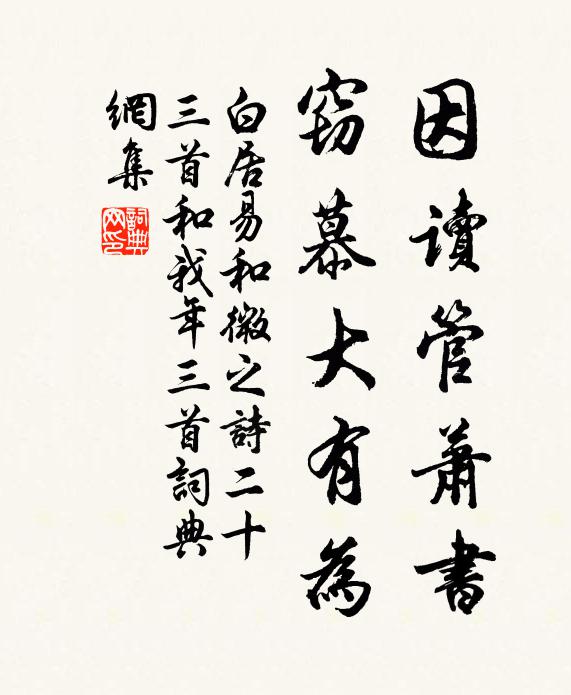 因讀管蕭書
竊慕大有為
白居易和微之詩二十
三首和我年三首詞典
網集
詞典
网印